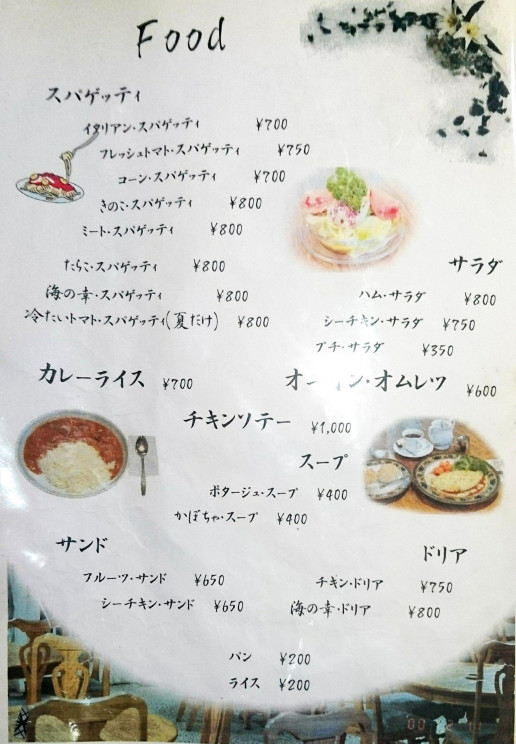 Food
スパゲッティ
イタリアン・スパゲッティ ¥700
フレッシュトマト・スパゲッティ ¥750
コーン・スパゲッティ ¥700
きのこ・スパゲッティ ¥800
ミート・スパゲッティ ¥800
たらこ・スパゲッティ ¥800
海の幸・スパゲッティ ¥800
冷たいトマト・スパゲッティ(夏だけ) ¥800
サラダ
ハム・サラダ ¥800
シーチキン・サラダ ¥750
プチ・サラダ ¥350
カレーライス ¥700
・オムレツ ¥600
チキンソテー ¥1,000
スープ
ポタージュ・スープ ¥400
かぼちゃ・スープ ¥400
サンド
フルーツ・サンド ¥650
シーチキン・サンド ¥650
ドリア
チキン・ドリア ¥750
海の幸・ドリア ¥800
パン ¥200
ライス ¥200